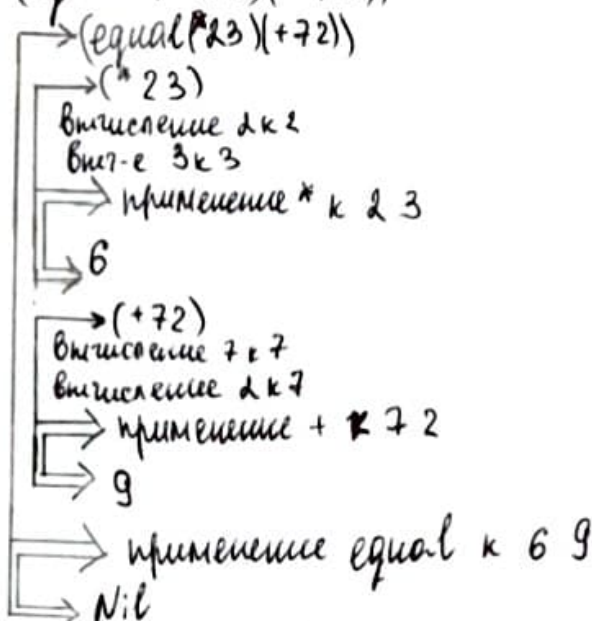 (equal(*23)(+72))
(* 23)
вычисление 2 к 2
выч-е 3 к 3
применение * к 2 3
6
(+72)
вычисление 7 к 7
вычисление 2 к 7
применение + к 7 2
9
применение equal к 6 9
Nil